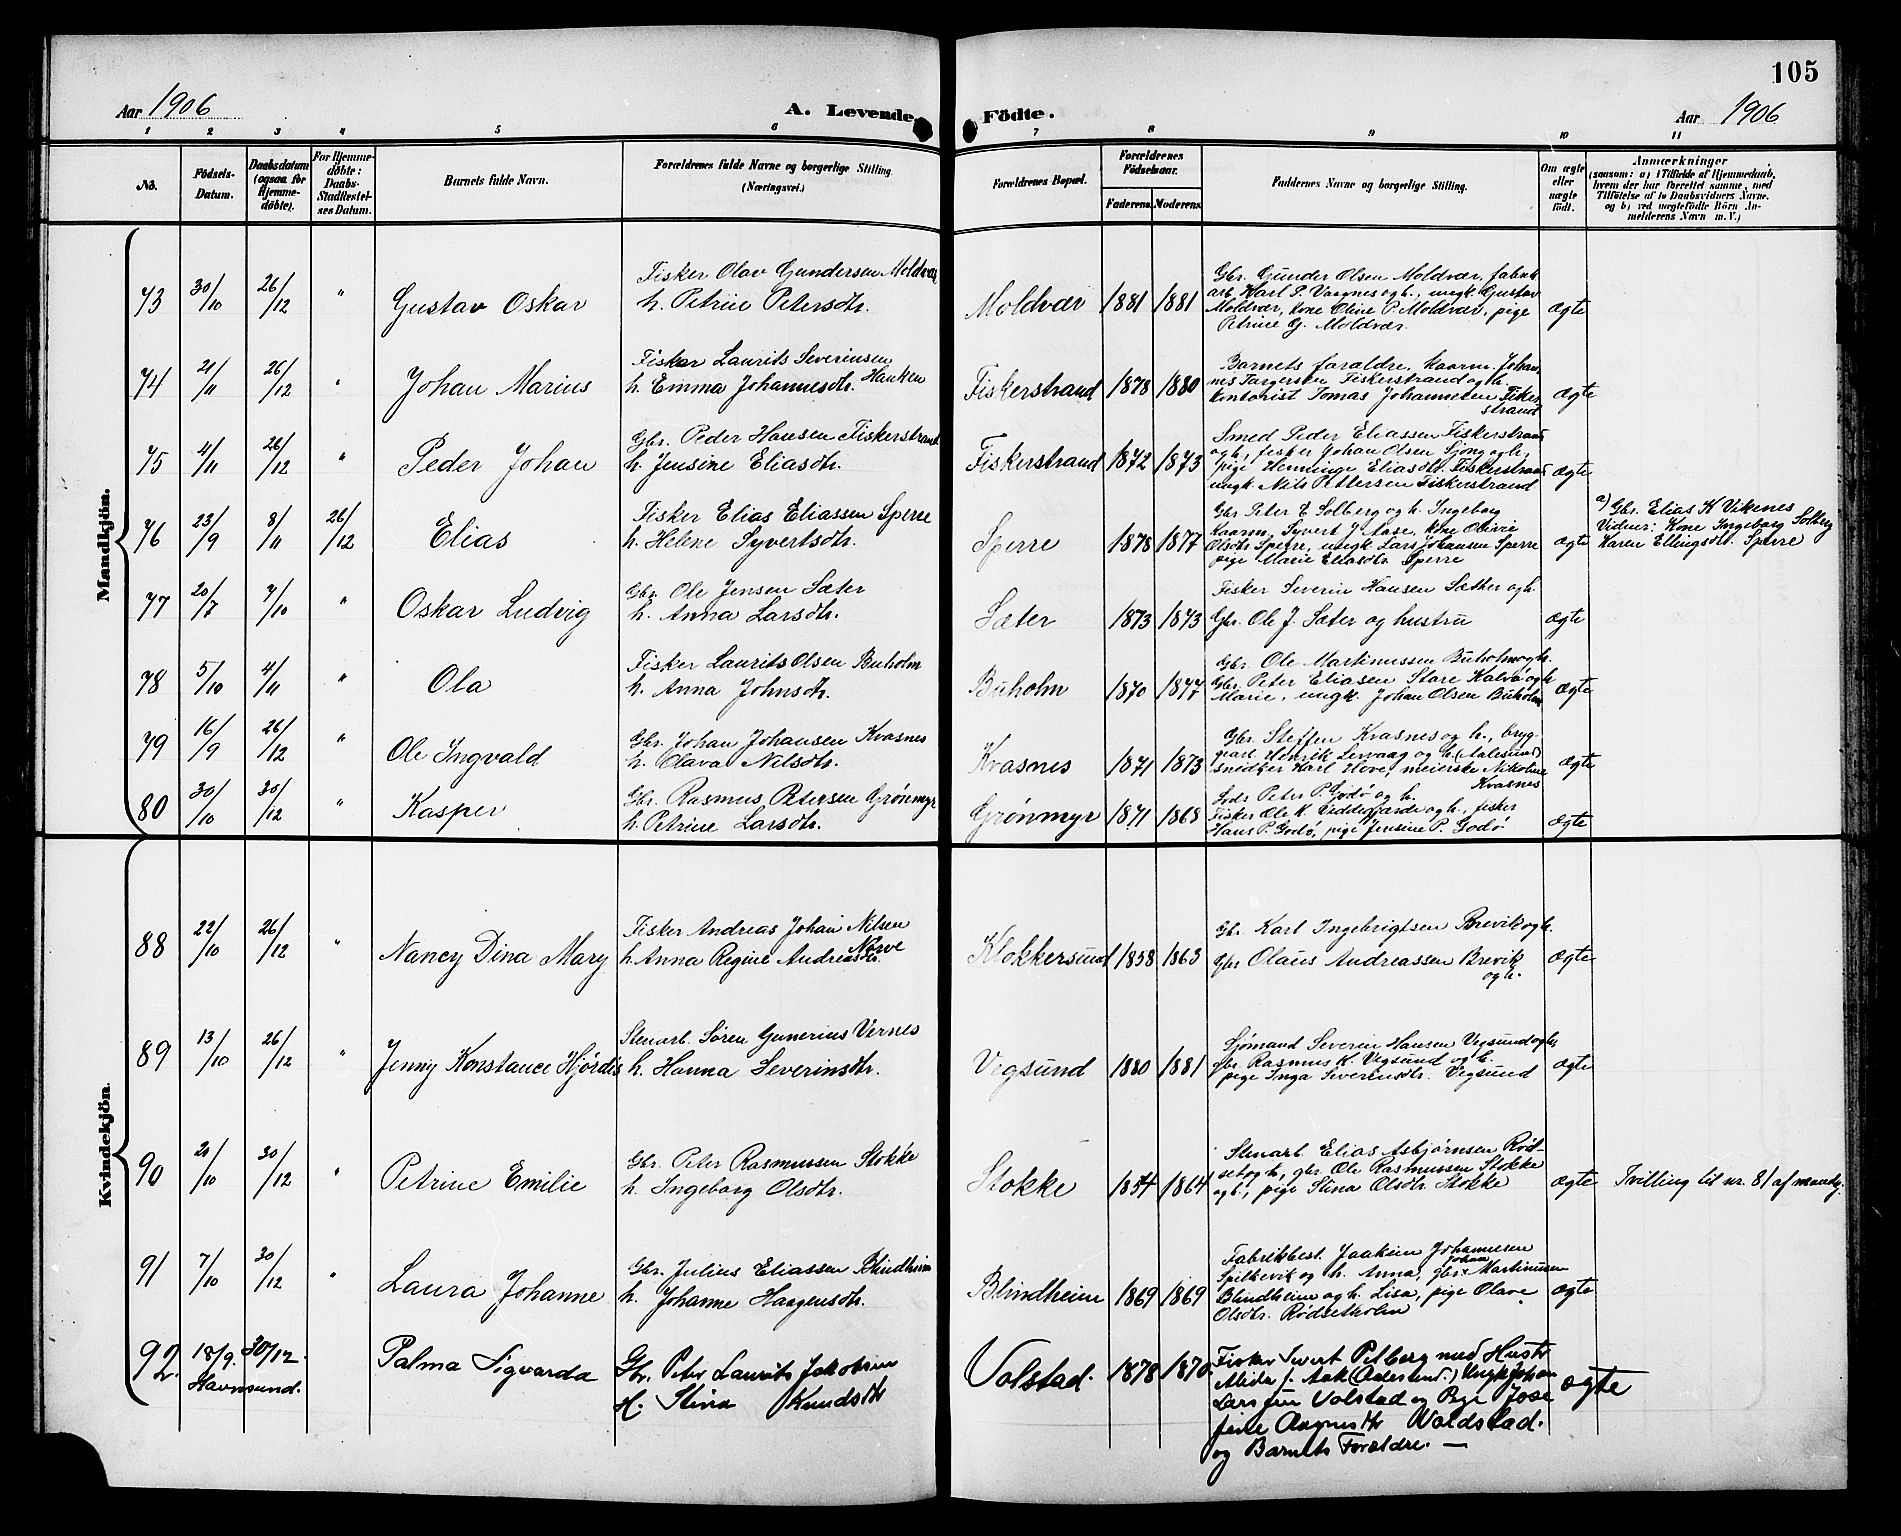 105
Aar 1906
A. Levende Födte.
Aar 1906
1 2 3 4 5 6 7 8 9 10 11
No.
Födsels-Datum.
Daabsdatum (ogsaa for Hjemme-döbte).
For Hjemme-döbte: Daabs-Stadfæstel-ses Datum.
Barnets fulde Navn.
Forældrenes fulde Navne og borgerlige Stilling. (Næringsvei.)
Forældrenes Bopæl.
Forældrenes Födselsaar.
Faderens. Moderens.
Faddernes Navne og borgerlige Stilling.
Om ægte eller uægte födt.
Anmærkninger
(saasom: a) i Tilfælde af Hjemmedaab, hvem der har forrettet samme, med Tilföielse af to Daabsvidners Navne. og b) ved uægtefödte Börn An-melderens Navn m. V.)
Mandkjön.
73 30/10 26/12 " Gustav Oskar
Fisker Olav Gundersen Moldvær
h. Petrine Petersdtr.
Moldvær 1881 1881
Gbr. Gunder Olsen Moldvær, fabrik
arb. Karl P. Vaagnes og h., ungk. Gustav
Moldvær, kone Oline P. Moldvær, pige
Petrine G. Moldvær.
ægte
74 21/11 26/12 " Johan Marius
Fisker Laurits Severinsen Hauken
h. Emma Johannesdtr.
Fiskerstrand 1878 1880
Barnets forældre, kaarm. Johan
nes Torgersen Fiskerstrand og h.
kontorist Tomas Johannesen Fisker
strand
ægte
75 4/11 26/12 " Peder Johan
Gbr. Peder Hansen Fiskerstrand
h. Jensine Eliasdtr.
Fiskerstrand 1872 1873
Smed Peder Eliassen Fiskerstrand
og h., fisker Johan Olsen Sjong og h.,
pige Henninge Eliasdtr. Fiskerstrand
ungk Nils Pettersen Fiskerstrand
ægte
76 23/9 8/11 26/12 Elias
Fisker Elias Eliassen Sperre
h. Helene Syvertsdtr.
Sperre 1878 1877
Gbr Peter E Solberg og h. Ingeborg
Kaarm. Syvert J Aase, kone Olivie
Olsdtr Sperre, ungk Lars Johansen Sperre
pige Marie Eliasdtr. Sperre
ægte
a) Gbr. Elias K Vikenes
Vidner: Kone Ingeborg Solberg
Karen Ellingsdtr. Sperre
77 20/7 7/10 " Oskar Ludvig
Gbr Ole Jensen Sæter
h. Anna Larsdtr.
Sæter 1873 1873
Fisker Severin Hansen Sæther og h.
Gbr. Ole J. Sæter og hustru
ægte
78 5/10 4/11 " Ola
Fisker Laurits Olsen Buholm
h. Anna Johnsdtr.
Buholm 1870 1877
Gbr Ole Martinussen Buholm og h.
Gbr Peter Eliasen Store Kalvø og h
Marie, ungk. Johan Olsen Buholm
ægte
79 16/9 26/12 " Ole Ingvald
Gbr. Johan Johansen Kvasnes
h. Olava Nilsdtr.
Kvasnes 1871 1873
Gbr Steffen Kvasnes og h., bryg
gearb Henrik Lervaag og h. (Aalesund)
snedker Karl Hove, meierske Nikoline
Kvasnes
ægte
80 30/10 30/12 " Kasper
Gbr. Rasmus Petersen Grönmyr
h. Petrine Larsdtr.
Grönmyr 1871 1868
Lods Peter P. Godø og h.
Fisker Ole K. og h., fisker
Hans P. Godø, pige Jensine P. Godø
ægte
Kvindekjön.
88 22/10 26/12 " Nancy Dina Mary
Fisker Andreas Johan Nilsen Nørve
h. Anna Regine Andreasdtr.
Klokkersund 1858 1863
Gbr. Karl Ingebrigtsen Brevik og h.
Gbr Olaus Andreassen Brevik
og h.
ægte
89 13/10 26/12 " Jenny Konstance Hjørdis
Stenarb. Søren Gunerius Vernes
h. Hanna Severinsdtr.
Vegsund 1880 1881
Sjømand Severin Hansen Vegsund og h.
Gbr. Rasmus K. Vegsund og h.
pige Inga Severinsdtr. Vegsund
ægte
90 20/10 30/12 " Petrine Emilie
Gbr. Peter Rasmussen Stokke
h. Ingeborg Olsdtr.
Stokke 1854 1864
Stenarb Elias Asbjørnsen Rød-
set og h., gbr Ole Rasmussen Stokke
og h., pige Stina Olsdtr. Stokke
ægte
Tvilling til nr. 81 af mandkj.
91 7/10 30/12 " Laura Johanne
Gbr. Julius Eliassen Blindheim
h. Johanne Haagensdtr.
Blindheim 1869 1869
Fabrikbest. Joakim Johannesen
Spilkevik og h. Anna, gbr Johan Martinusen
Blindheim og h. Lisa, pige Olave
Olsdtr. Rødsetholm
ægte
92. 18/9. 30/12. Palma Sigvarda
Havnsund.
Gbr. Peter Laurits Jakobsen
H. Stina Knudsdtr
Volstad. 1878 1870
Fisker Sivert Petberg med Hustr
(Aalesund.) Ungk Johan
Larsen Volstad og Pige Jose
fine Aagnesdtr Woldstad.
og Barnets Forældre. —
ægte